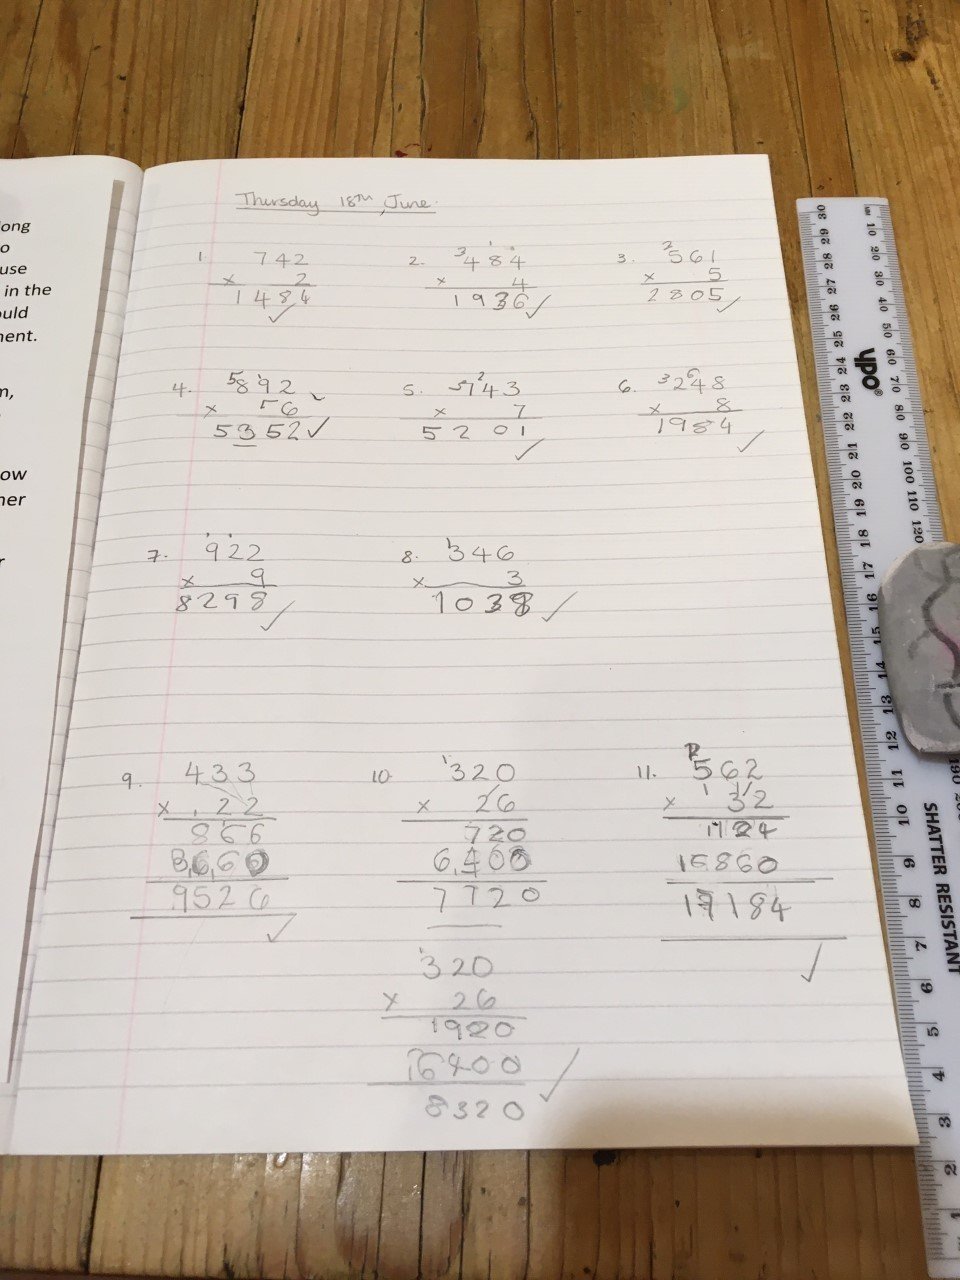 Thursday 18TH, June.
1. 742
× 2
1484
2. 484
× 4
1936
3. 561
× 5
2805
4. 892
× 6
5352
5. 743
× 7
5201
6. 248
× 8
1984
7. 922
× 9
8298
8. 346
× 3
1038
9. 433
× 22
866
8,660
9526
10 320
× 26
720
6,400
7720
320
× 26
1920
6400
8320
11. 562
× 32
1124
16860
17184
ong
o
use
in the
ould
nent.
n,
ow
ner
r
mm 10 20 30 40 50 60 70 80 90 100 110 120
30 29 28 27 26 25 24 23 22 21 20 19 18 17 16 15 14 13 12 11 10 9 8 7 6 5 4 3 2 1
ypo
SHATTER RESISTANT